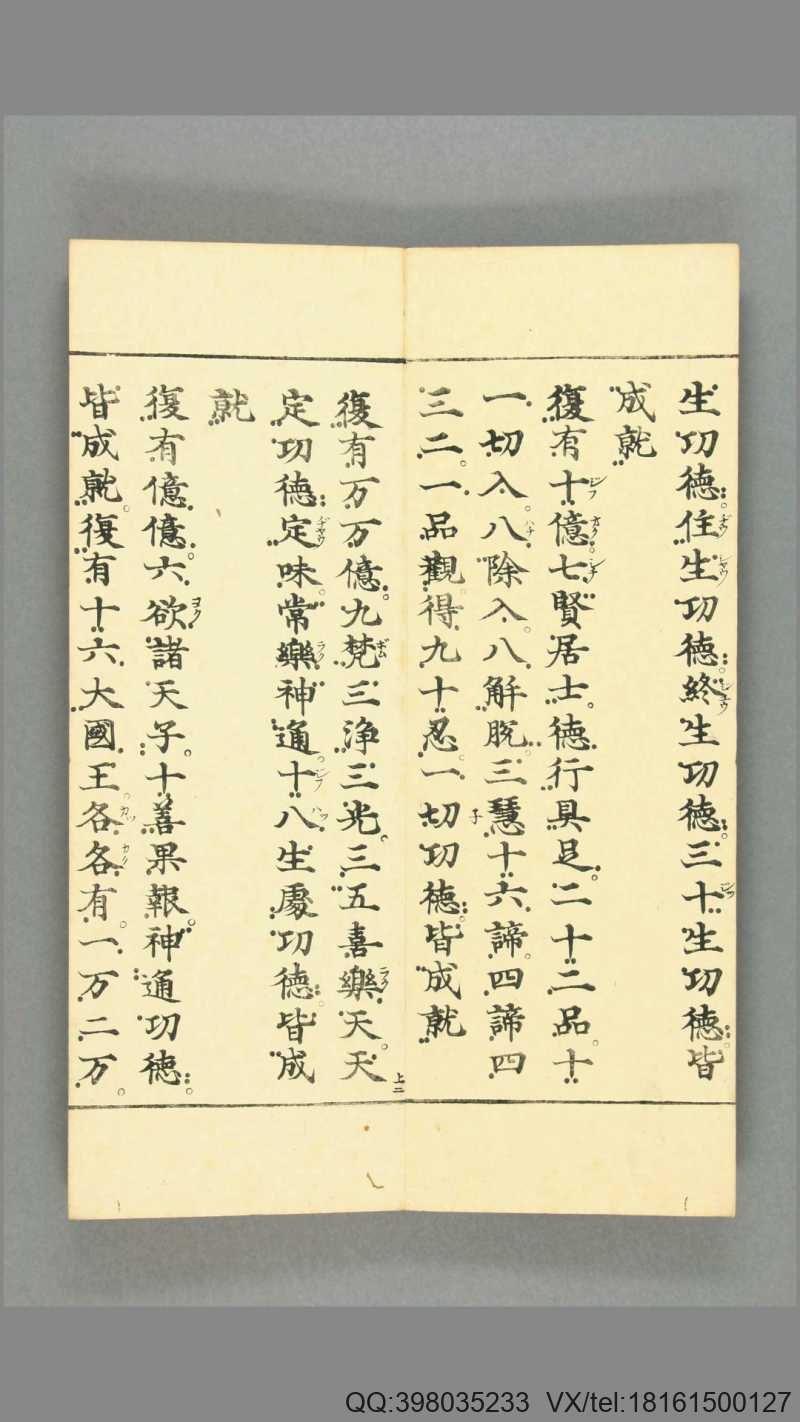 生功德住生功德終生功德三十生功德皆
成就
復有十億七賢居士德行具足二十二品十
一切入八除入八解脫三慧十六諦四諦四
三二一品觀得九十忍一切功德皆成就
復有万万億九梵三淨三光三五喜樂天天
定功德定味常樂神通十八生處功德皆成
就
復有億億六欲諸天子十善果報神通功德
皆成就復有十六大國王各各有一万二万
上二
QQ:398035233 VX/tel:18161500127